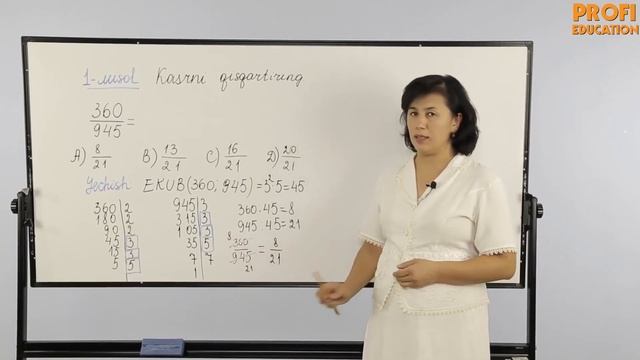 PROFI
EDUCATION
1-misol Kasrni qisqartiring
360
945 =
A) 8/21 B) 13/21 C) 16/21 D) 20/21
Yechish EKUB(360; 945) = 3²·5 = 45
360 | 2 945 | 3
180 | 2 315 | 3 360 : 45 = 8
90 | 2 105 | 3 945 : 45 = 21
45 | 3 35 | 5 8 360/945 21 = 8/21
15 | 3 7 | 7
5 | 5 1